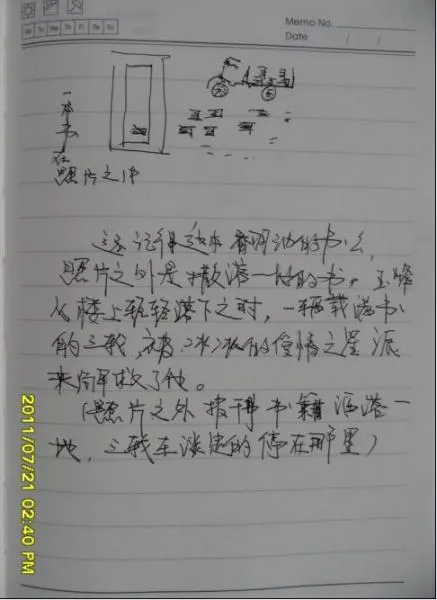 Memo No.
Date / /
Mo Tu We Th Fr Sa Su
一本书在
照片之中
还记得这本的书么,
照片之外是撒落一地的书。
从楼上轻轻落下之时,一辆载满书
的三轮,被的之星派
来解救了他。
(照片之外报刊书籍洒落一
地,三载车淡定的停在那里)
2011/07/21 02:40 PM